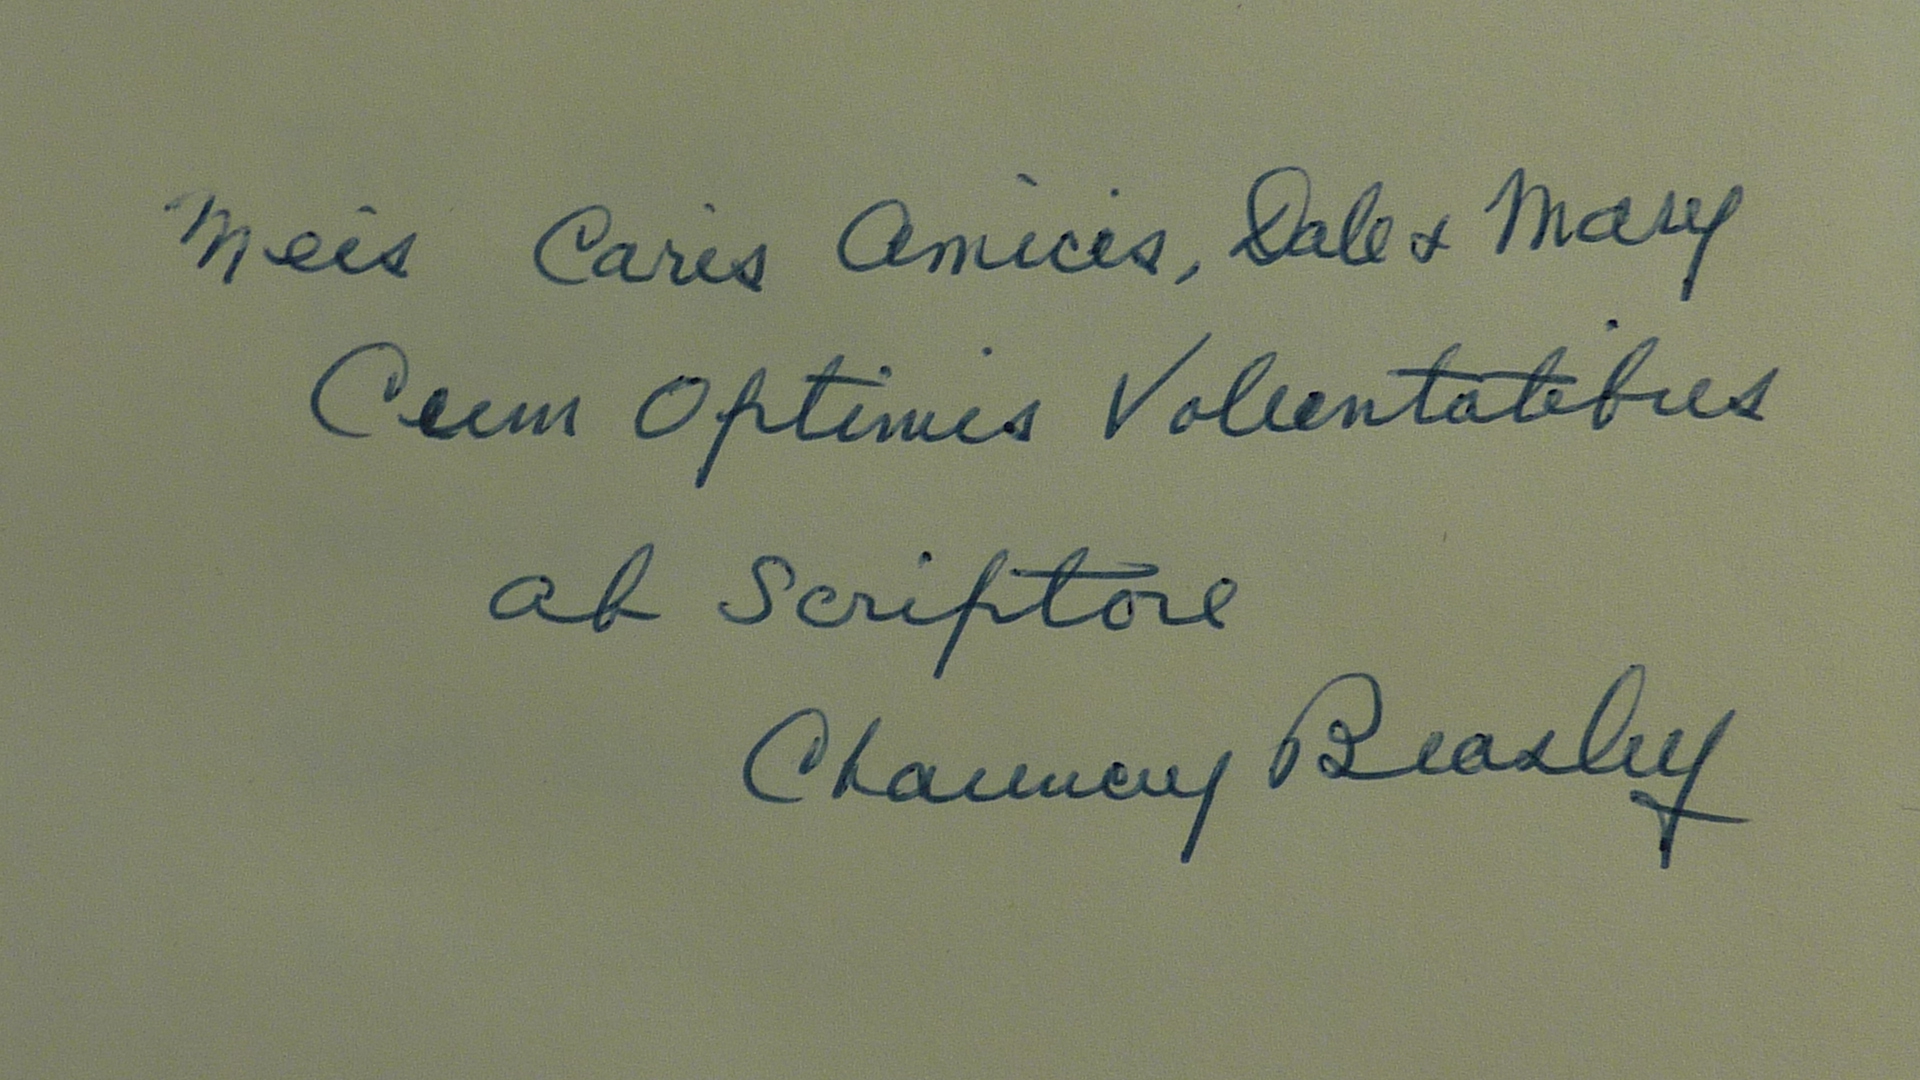 Meis Caris Amicis, Dale & Mary
Cum Optimis Voluntatibus
ab Scriptore
Chauncey Beasley